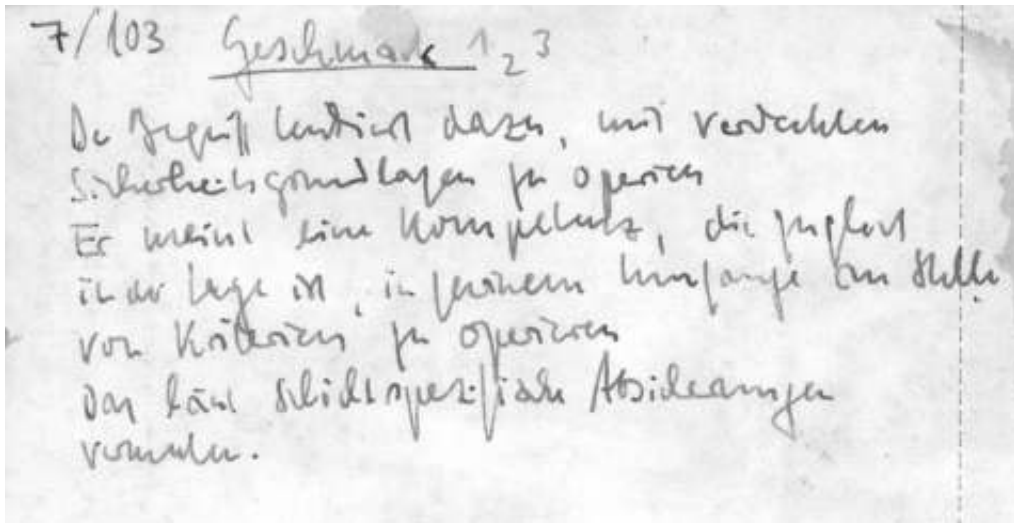 7/103 Geschmack 1 2 3
Der Begriff tendiert dazu, mit verdeckten
Sicherheitsgrundlagen zu operieren
Er meint eine Kompetenz, die
in der Lage ist, in Umfange an Stelle
von Kriterien zu operieren
Das läßt schichtspezifische Absicherungen
vermuten.